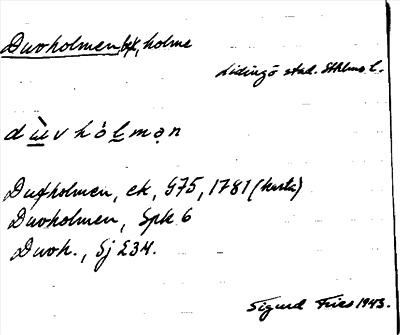 Duvholmen, holme
Lidingö stad. Sthlms l.
dùvhòlmən
Dufholmen, ek, G75, 1781 (karta)
Duvholmen, Spk 6
Duvh., Sj 234.
Sigurd Fries 1943.